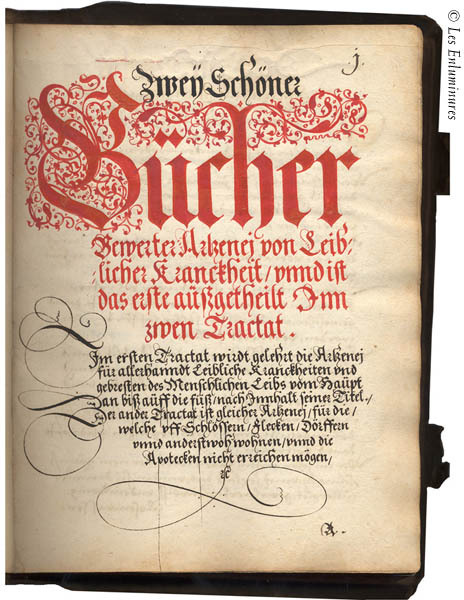 j.
Zweÿ Schöner
Bücher
Bewerter Artzenej von Leib⸗
⸗licher Kranckheit / vnnd ist
das erste aüßgetheilt Inn
zwen Tractat.
Im ersten Tractat wirdt gelehrt die Artzenej
für allerhanndt Leibliche Kranckheiten vnd
gebresten des Menschlichen Leibs vom Haüpt
an biß aüff die füß / nach Innhalt seiner Titel.
Der ander Tractat ist gleicher Artzenej / für die /
welche vff Schlössern / Flecken / Dörffern
vnnd anderstwoh wohnen / vnnd die
Apotecken nicht erreichen mögen /
A.
© Les Enluminures